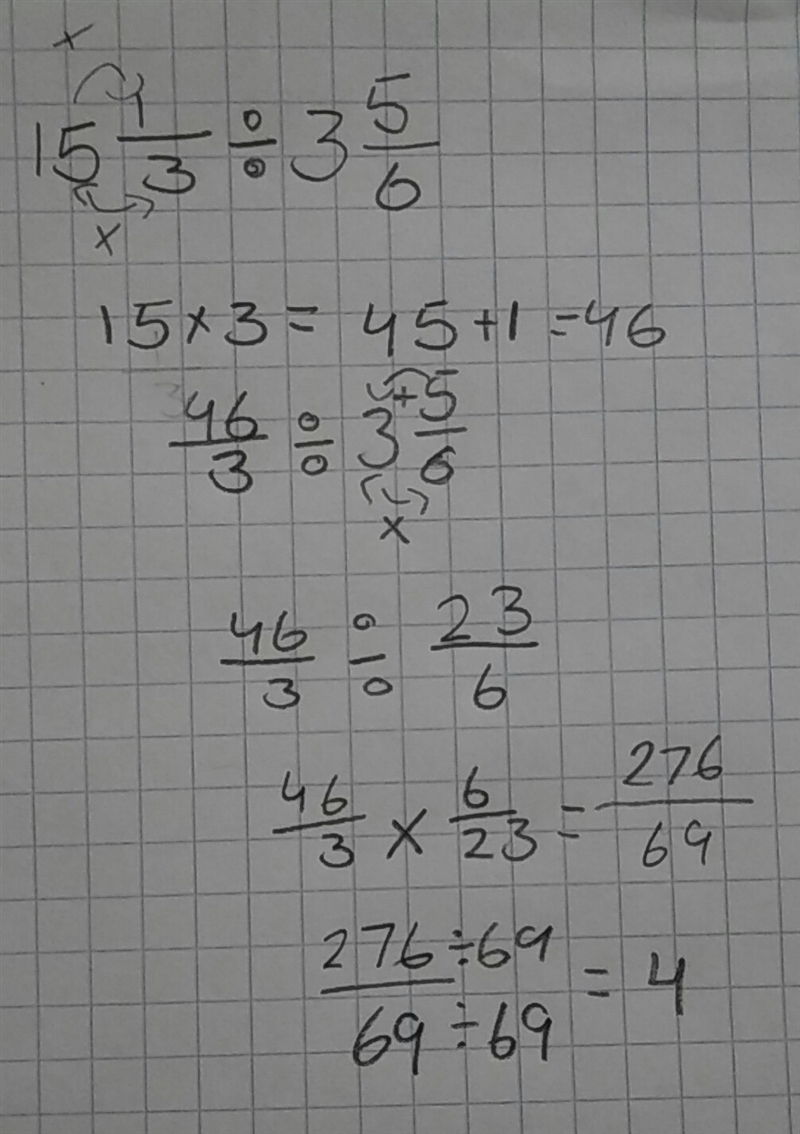 +
15 1/3 ÷ 3 5/6
x
15 x 3 = 45 + 1 = 46
46/3 ÷ 3 + 5/6
x
46/3 ÷ 23/6
46/3 x 6/23 = 276/69
276 ÷ 69 / 69 ÷ 69 = 4